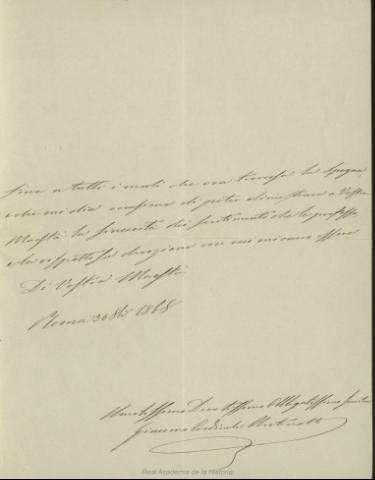 fine a tutti i mali che ora travaglia la Spagna
e che mi dia campo di poter dimostrare a Vostra
Maestà la sincerità dei sentimenti che le professo,
e la rispettosa devozione con cui mi onoro essere
Di Vostra Maestà
Roma 30 8bre 1868
Umilissimo Devotissimo Obbligatissimo Servitore
Giacomo Cardinale Antonelli
Real Academia de la Historia